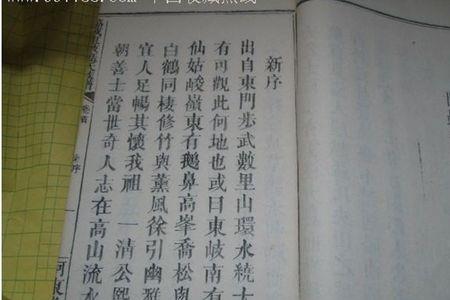 新序
出自東門步武數里山環水繞
有可觀此何地也或曰東岐南有
仙姑峻嶺東有鵝鼻高峯喬松與
白鶴同棲修竹與薰風徐引幽雅
宜人足暢其懷我祖 一清公熙
朝善士當世奇人志在高山流水
卷首
序
河東